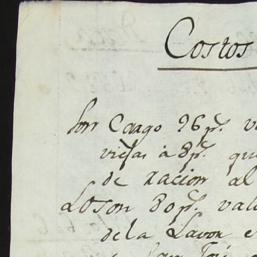 Costos
Son Cargo 96 ps. v
viejas à 8 ps. qu
de racion al
Loson 80 ps. vale
de la Lavor e